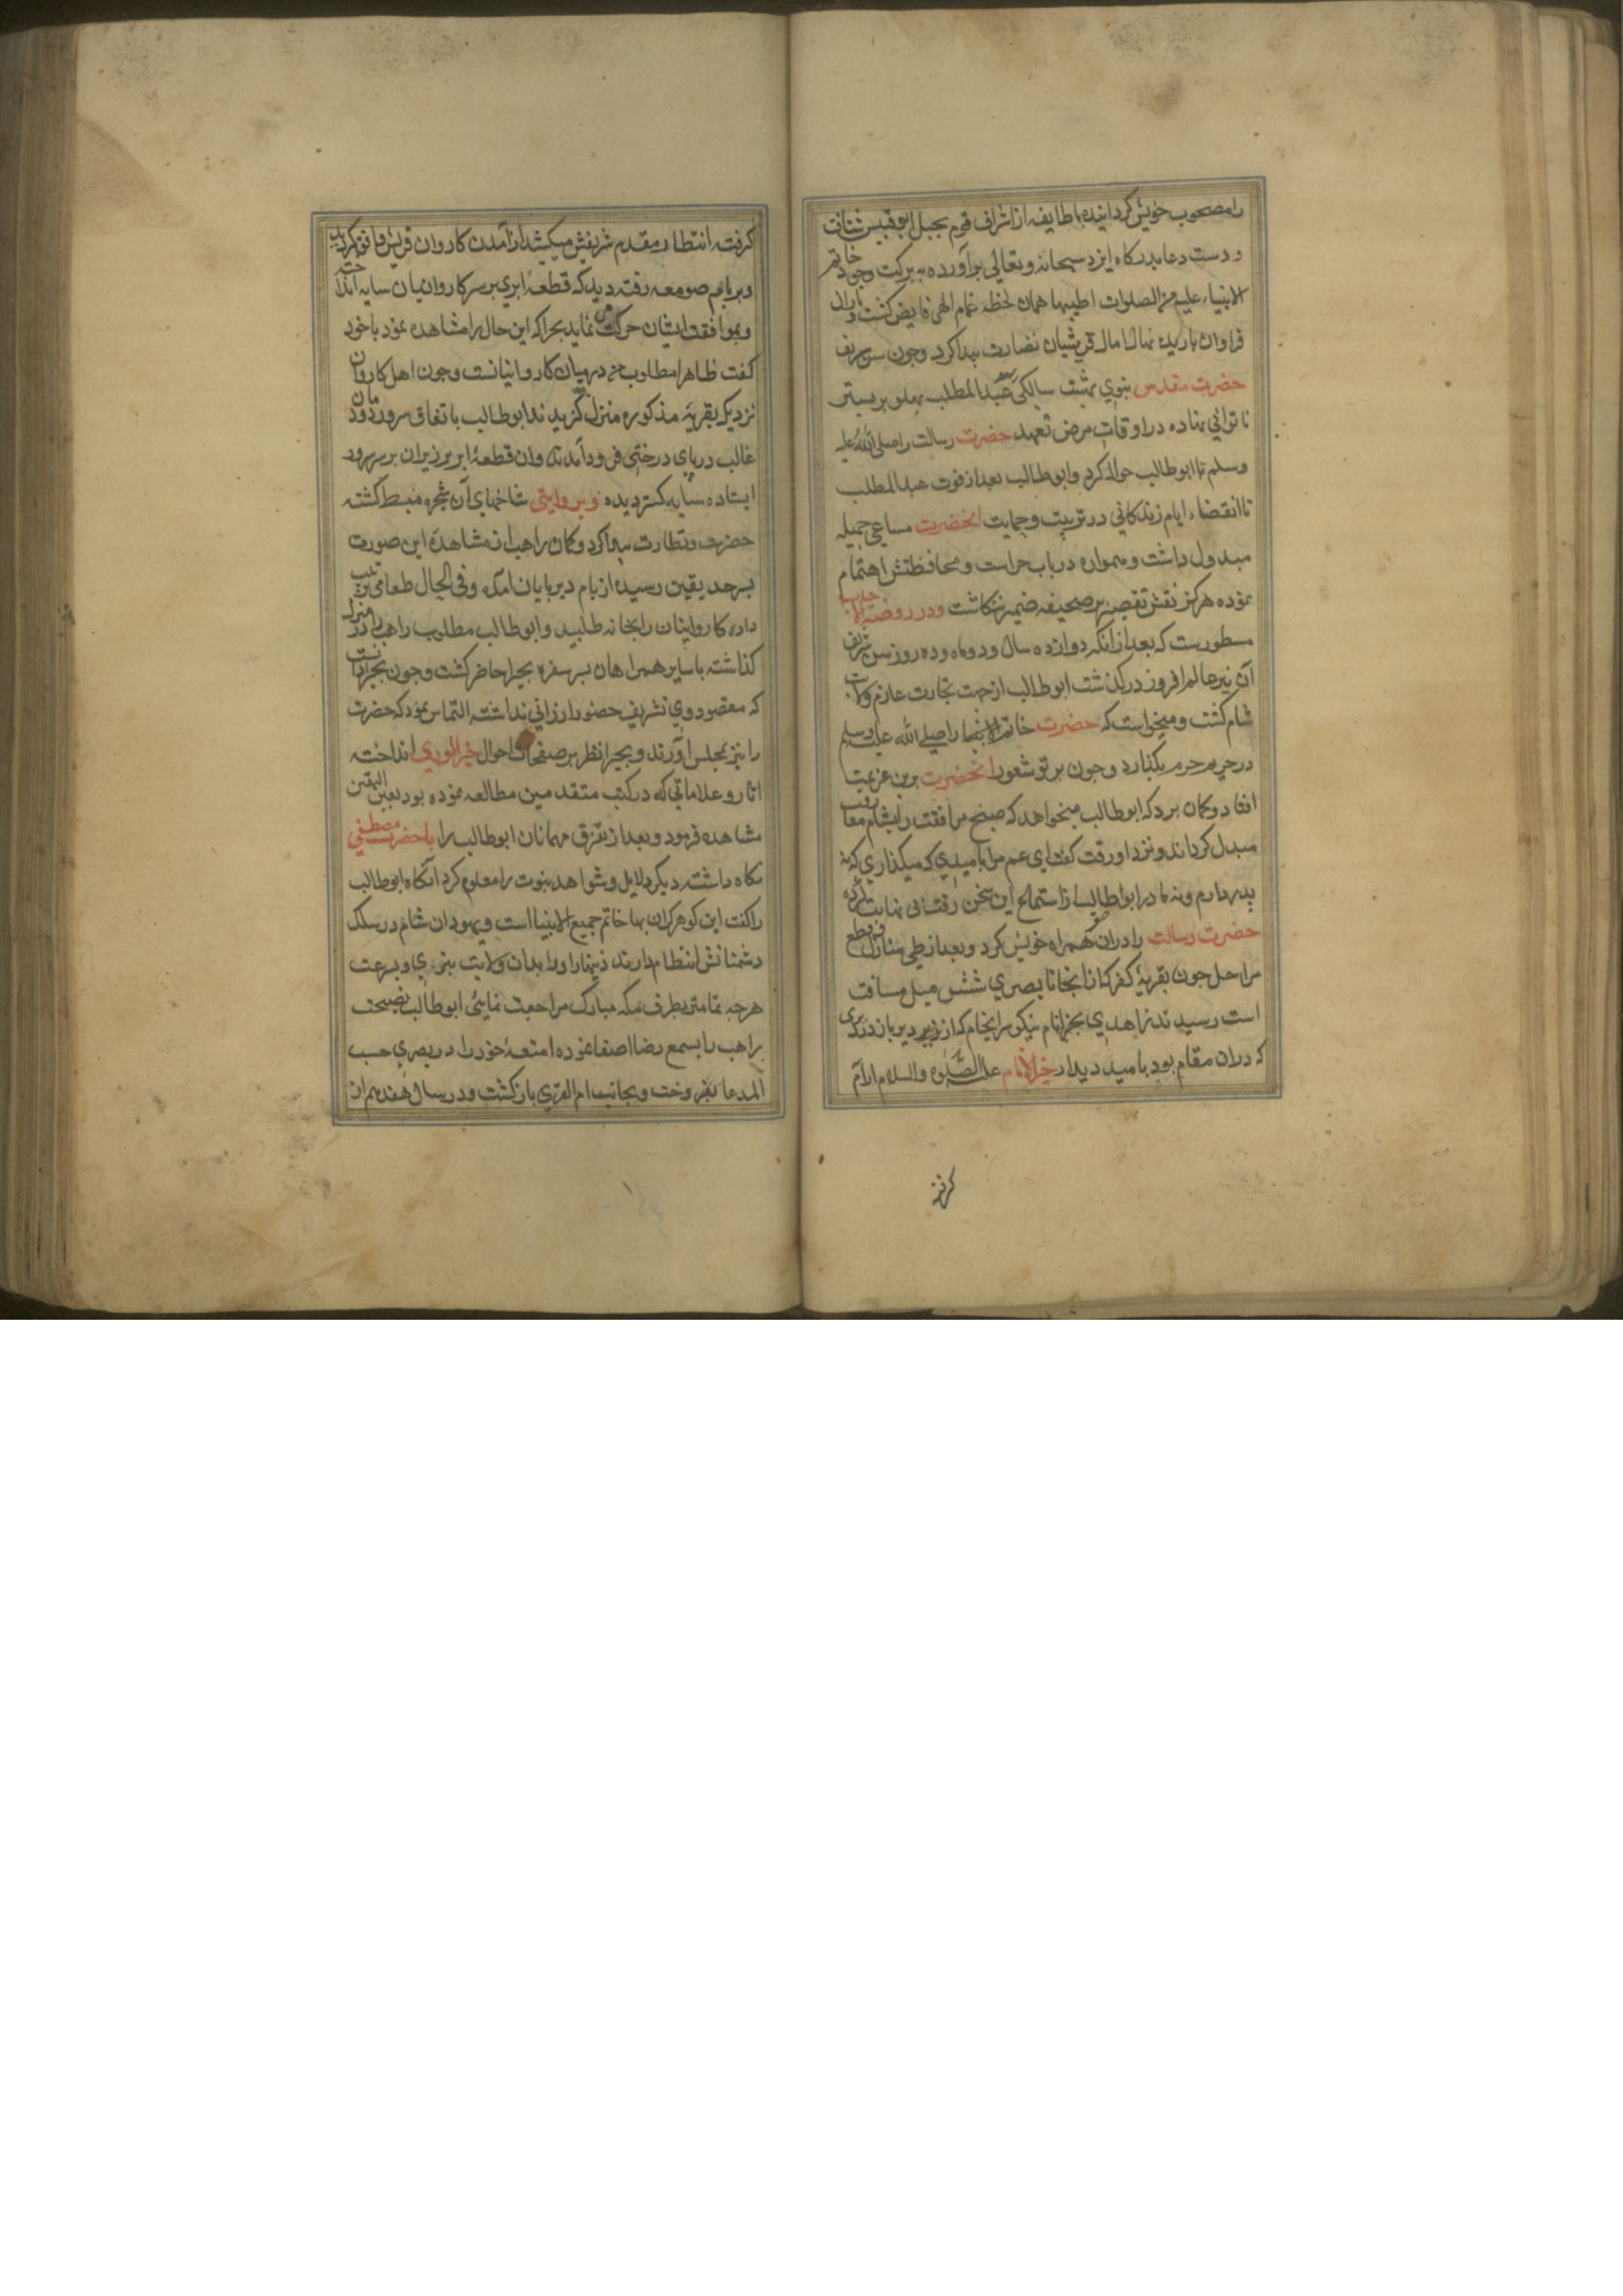 را مصحوب خویش کردانیده با طایفه از اشراف قوم بجبل ابو قبیس شتافت
و دست دعا بدرکاه ایزد سبحانه و تعالی برآورده به برکت وجود خاتم
الانبیاء علیه من الصلوات اطیبها همان لحظه غمام الهی فایض کشت و باران
فراوان باریده نهال امال قریشیان نضارت پیدا کرد و چون سن شریف
حضرت مقدس نبوی بهشت سالکی رسید عبدالمطلب پهلو بر بستر
ناتوانی نهاده در اوقات مرض تعهد حضرت رسالت را صلی الله علیه
وسلم با ابوطالب حواله کرد و ابوطالب بعد از فوت عبدالمطلب
تا انقضاء ایام زندکانی در تربیت و حمایت انحضرت مساعی جمیله
مبذول داشت و همواره در باب حراست و محافظتش اهتمام
نموده هرکز نقش تقصیر بر صحیفه ضمیر ننکاشت و در روضة الاحباب
مسطورست که بعد از انکه دوازده سال و دو ماه و ده روز از سن شریف
آن نیر عالم افروز درکذشت ابوطالب از جهت تجارت عازم ولایت
شام کشت و میخواست که حضرت خاتم الانبیا را صلی الله علیه وسلم
در حریم حرم بکذارد و چون پرتو شعور انحضرت برین عزیمت
افتاد و کمان برد که ابوطالب میخواهد که صبح مرافقت را بشام مفارقت
مبدل کرداند و نزد او رفت کفت ای عم مرا بامیدی که میکذاری که نه
پدر دارم و نه مادر ابوطالب از استماع این سخن رقت بی نهایت کرده
حضرت رسالت را دران سفر همراه خویش کرد و بعد از طی منازل و قطع
مراحل چون بقریه کفر که از انجا تا بصری شش میل مسافت
است رسیدند زاهدی بحیرا نام نیکو سرانجام که از دیر باز در دیری
که دران مقام بود بامید دیدار خیر الانام علیه الصلوه والسلام ارام
کرفته
کرفته انتظار مقدم شریفش میکشید از آمدن کاروان قریش وقوف یافت
و بر بام صومعه رفته دید که قطعه ابری بر سر کاروانیان سایه انداخته
و بموافقت ایشان حرکت می نماید بحیرا که این حال را مشاهده نمود با خود
کفت ظاهرا مطلوب من در میان کاروانیانست و چون اهل کاروان
نزدیک بقریه مذکوره منزل کزیدند ابوطالب باتفاق سرور دودمان
غالب در پای درختی فرود آمدند وان قطعه ابر بر زبران بر سر سرور
ایستاده سایه کسترد و بروایتی شاخهای آن شجره منبسط کشته
خضرت و نظارت پیدا کرد و کمان راهب از مشاهده این صورت
بسرحد یقین رسیده از بام دیر پایان امده و فی الحال طعامی ترتیب
داده کاروانیان را بخانه طلبید و ابوطالب مطلوب راهب را در منزل
کذاشته با سایر همراهان بسر سفره بحیرا حاضر کشت و چون بحیرا دانست
که مقصود وی تشریف حضور ارزانی نداشته التماس نمود که حضرت
را نیز بمجلس اورند و بحیرا نظر بر صفحات احوال خیر الوری انداخته
اثار و علاماتی که در کتب متقدمین مطالعه نموده بود بعین الیقین
مشاهده فرمود و بعد از تفرق مهمانان ابوطالب را با حضرت مصطفی
نکاه داشته دیکر دلایل و شواهد نبوت را معلوم کرد آنکاه ابوطالب
را کفت این کوهر کران بها خاتم جمیع الانبیا است و یهودان شام در سلک
دشمنانش انتظام دارند زینهار او را بدان ولایت نبری و بسرعت
هرچه تمامتر بطرف مکه مبارک مراجعت نمایی ابوطالب نصیحت
راهب را بسمع رضا اصغا نموده امتعه خود را در بصری حسب
المدعا بفروخت و بجانب ام القری باز کشت و در سال هفدهم از